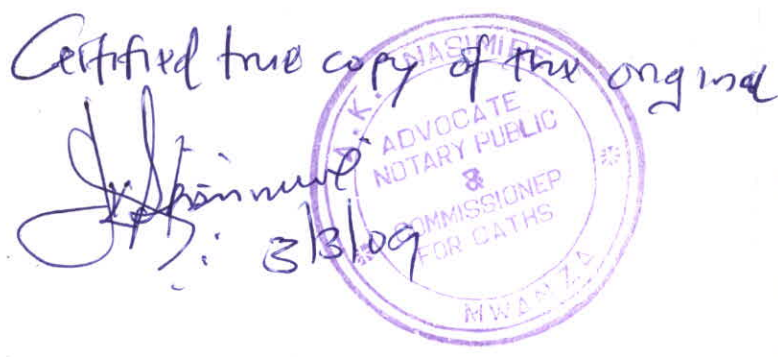 Certified true copy of the original
A.K. NASIMIRE
ADVOCATE
NOTARY PUBLIC
&
COMMISSIONER
FOR OATHS
MWANZA
3/3/09